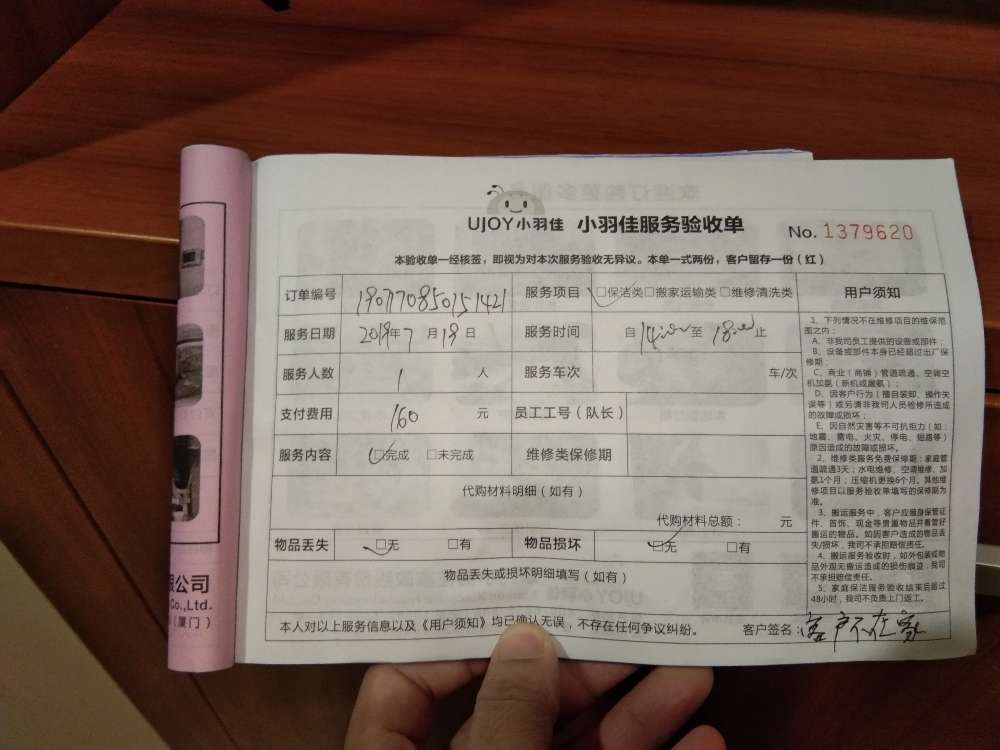 UJOY小羽佳 小羽佳服务验收单 No. 1379620
本验收单一经核签，即视为对本次服务验收无异议。本单一式两份，客户留存一份（红）
订单编号 190717085015 1421 服务项目 □保洁类□搬家运输类□维修清洗类
服务日期 2019年7月19日 服务时间 自14:00至18:00止
服务人数 1 人 服务车次 车/次
支付费用 160 元 员工工号（队长）
服务内容 □完成 □未完成 维修类保修期
代购材料明细（如有）
代购材料总额： 元
物品丢失 □无 □有 物品损坏 □无 □有
物品丢失或损坏明细填写（如有）
本人对以上服务信息以及《用户须知》均已确认无误，不存在任何争议纠纷。 客户签名：客户不在家
用户须知
1、下列情况不在维修项目的维保范
围之内：
A、非我司员工提供的设备或部件；
B、设备或部件本身已经超过出厂保
修期；
C、商业（商铺）管道疏通、空调空
机加氟（新机或漏氟）；
D、因客户行为（擅自装卸、操作失
误等）或另请非我司人员检修所造成
的故障或损坏；
E、因自然灾害等不可抗拒力（如：
地震、雷电、火灾、停电、短路等）
原因造成的故障或损坏。
2、维修类服务免费保修期：家庭管
道疏通3天；水电维修、空调维修、加
氟1个月；压缩机更换6个月。其他维
修项目以服务验收单填写的保修期为
准。
3、搬运服务中，客户应随身保管证
件、首饰、现金等贵重物品并看管好
搬运的物品。如因客户造成的物品丢
失/损坏，我司不承担赔偿责任。
4、搬运服务验收时，如外包装或物
品外观无搬运造成的损伤痕迹，我司
不承担赔偿责任。
5、家庭保洁服务验收结束后超过
48小时，我司不负责上门返工。
限公司
Co.,Ltd.
（厦门）